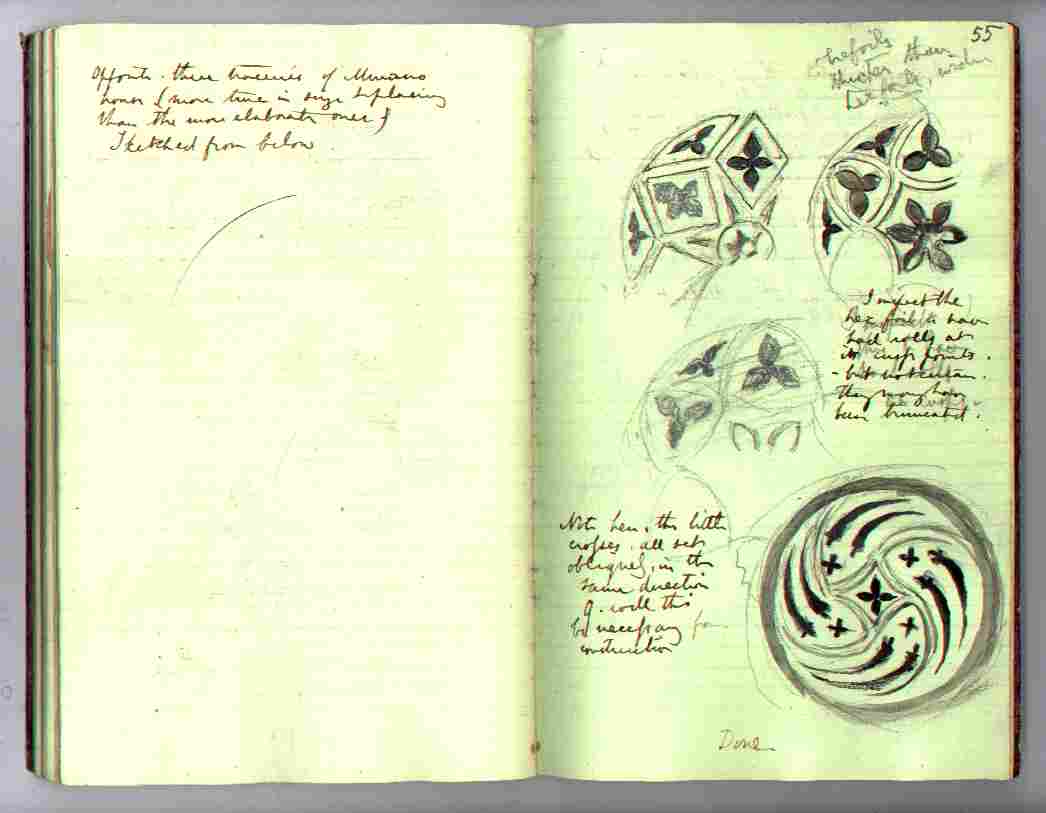 Opposite. three traceries of Murano
houses (more true in size & placing
than the more elaborate ones)
Sketched from below.
55
trefoils
thicker than
hexfoil,
I suspect the
hexfoil to have
had rolls at
its cusp points.
- but not certain.
they may have
been truncated.
Note here, the little
crosses. all set
obliquely, in the
same direction
Q. will this
be necessary for
construction
Done